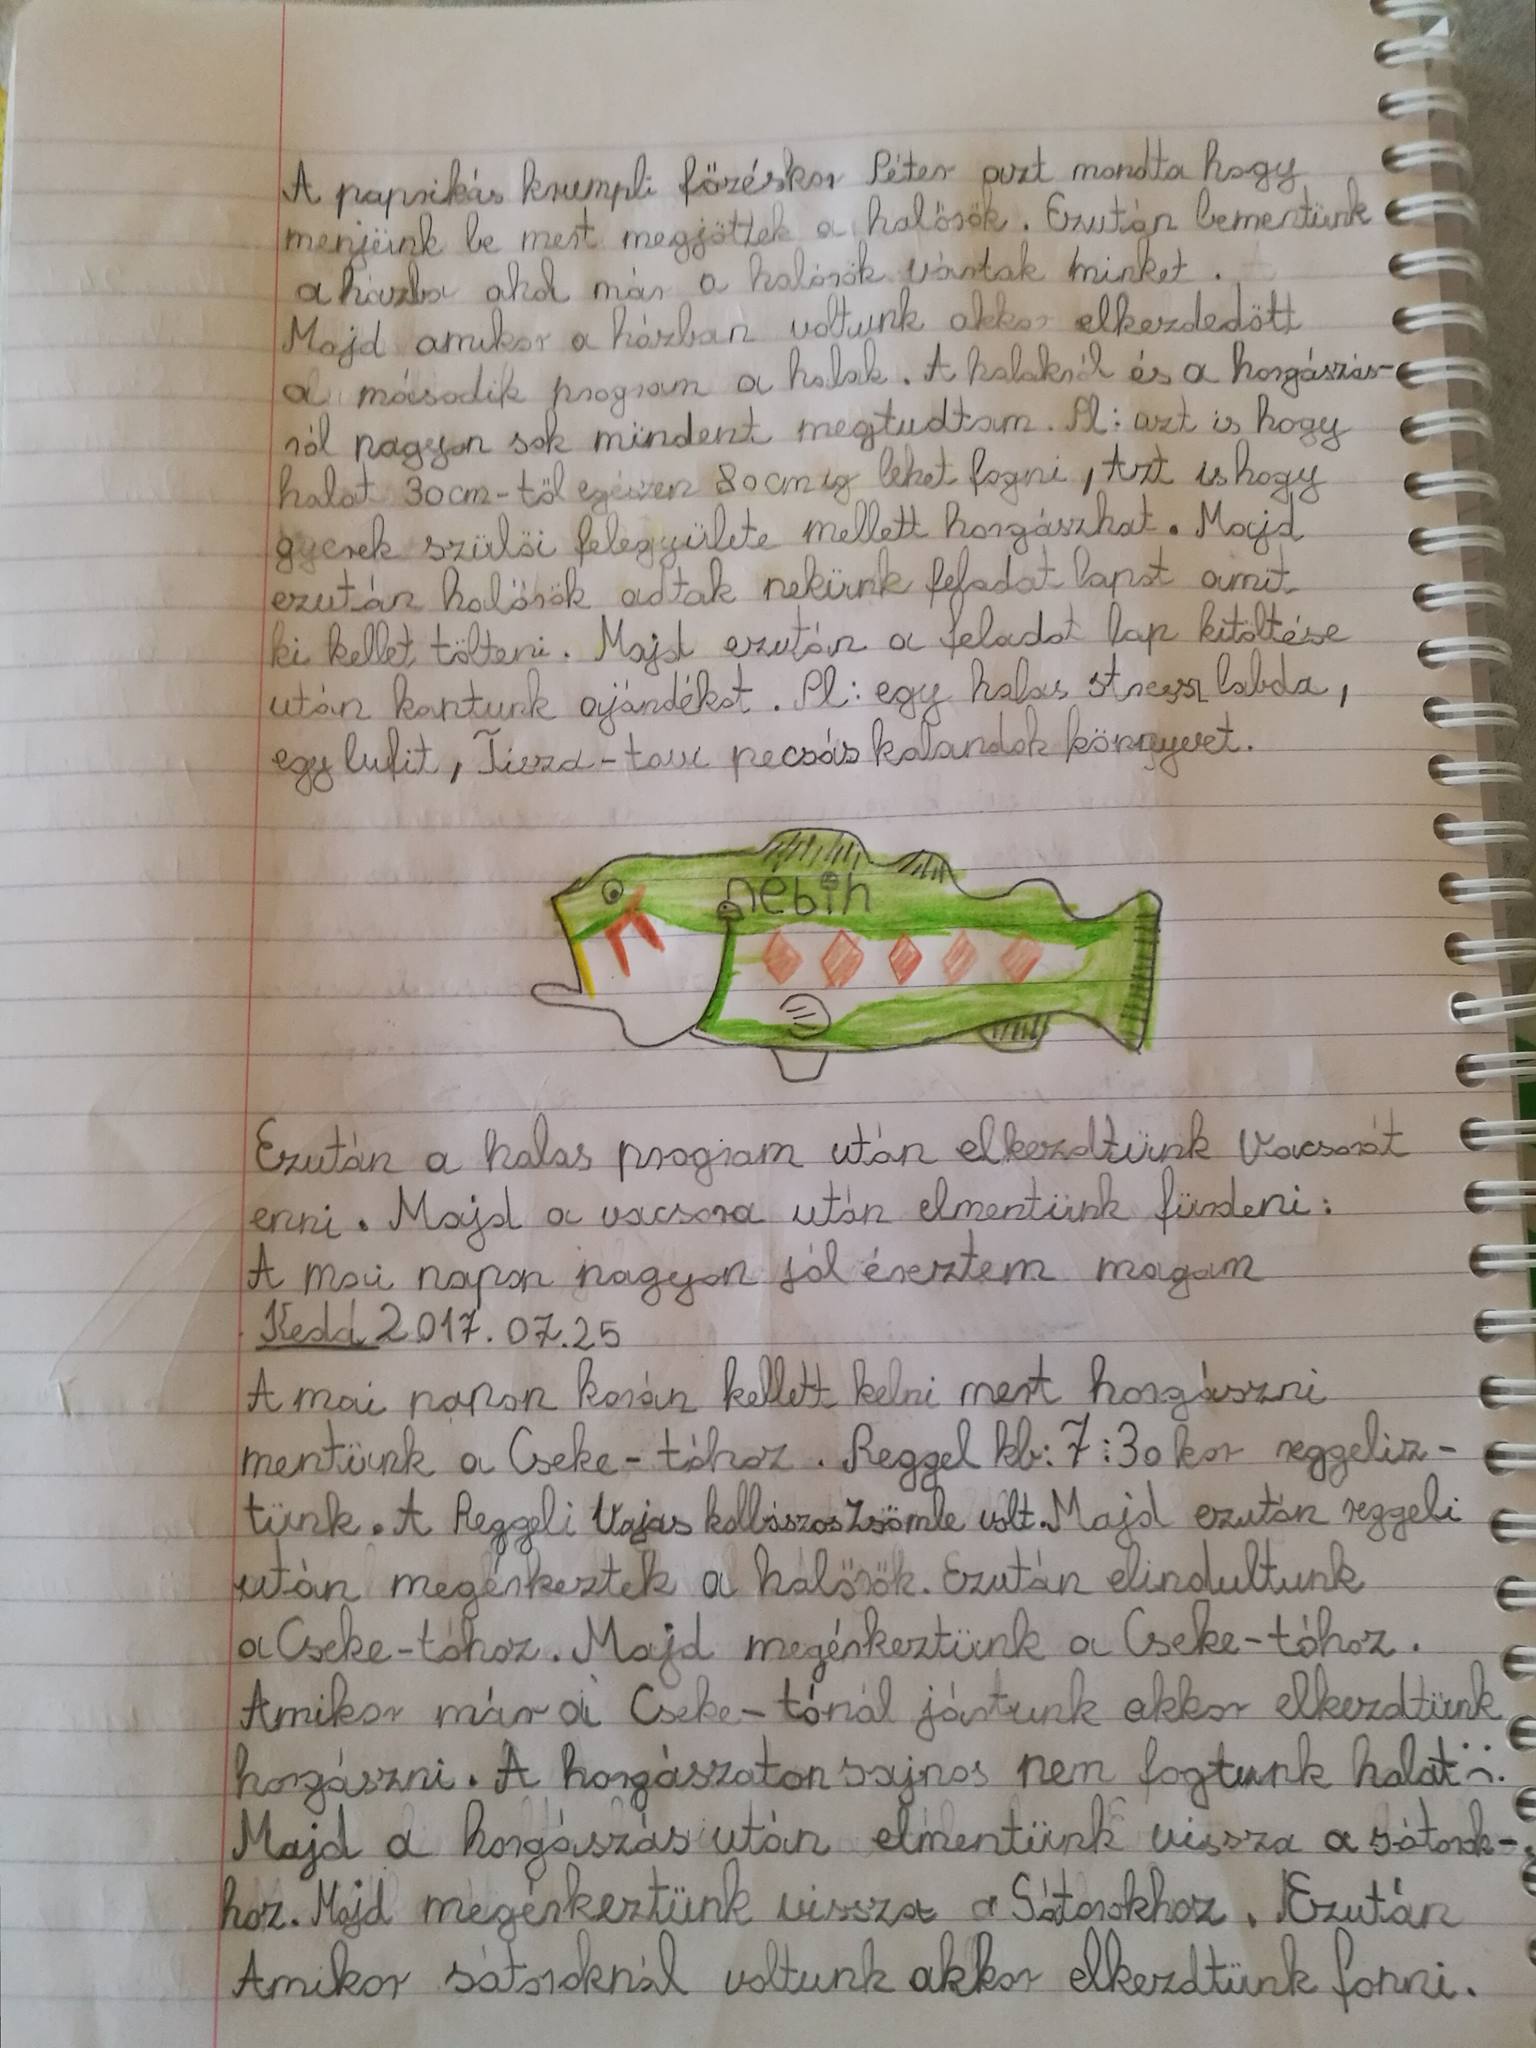 A paprikás krumpli főzéskor Péter azt mondta hogy
menjünk be mert megjöttek a halőrök. Ezután bementünk
a házba ahol már a halőrök vártak minket.
Majd amikor a házban voltunk akkor elkezdedött
a második program a halak. A halakról és a horgászás-
ról nagyon sok mindent megtudtam. Pl: azt is hogy
halat 30cm-től egészen 80cm ig lehet fogni, Azt is hogy
gyerek szülői felegyülete mellett horgászhat. Majd
ezután halőrök adtak nekünk feladat lapot amit
ki kellet tölteni. Majd ezután a feladat lap kitöltése
után kaptunk ajándékot. Pl: egy halas stressz labda,
egy lufit, Tisza-tavi pecsás kalandok könnyvet.
nébih
Ezután a halas program után elkezdtünk Vacsorát
enni. Majd a vacsora után elmentünk fürdeni:
A mai napon nagyon jól éreztem magam
Kedd 2017.07.25
A mai napon korán kellett kelni mert horgászni
mentünk a Cseke-tóhoz. Reggel kb: 7:30 kor reggeliz-
tünk. A Reggeli Vajas kolbászos Zsömle volt. Majd ezután reggeli
után megérkeztek a halőrök. Ezután elindultunk
a Cseke-tóhoz. Majd megérkeztünk a Cseke-tóhoz.
Amikor már a Cseke-tónál jártunk akkor elkezdtünk
horgászni. A horgászaton sajnos nem fogtunk halat :(.
Majd a horgászás után elmentünk vissza a sátorok-
hoz. Majd megérkeztünk vissza a Sátorokhoz. Ezután
Amikor sátoroknál voltunk akkor elkezdtünk fonni.